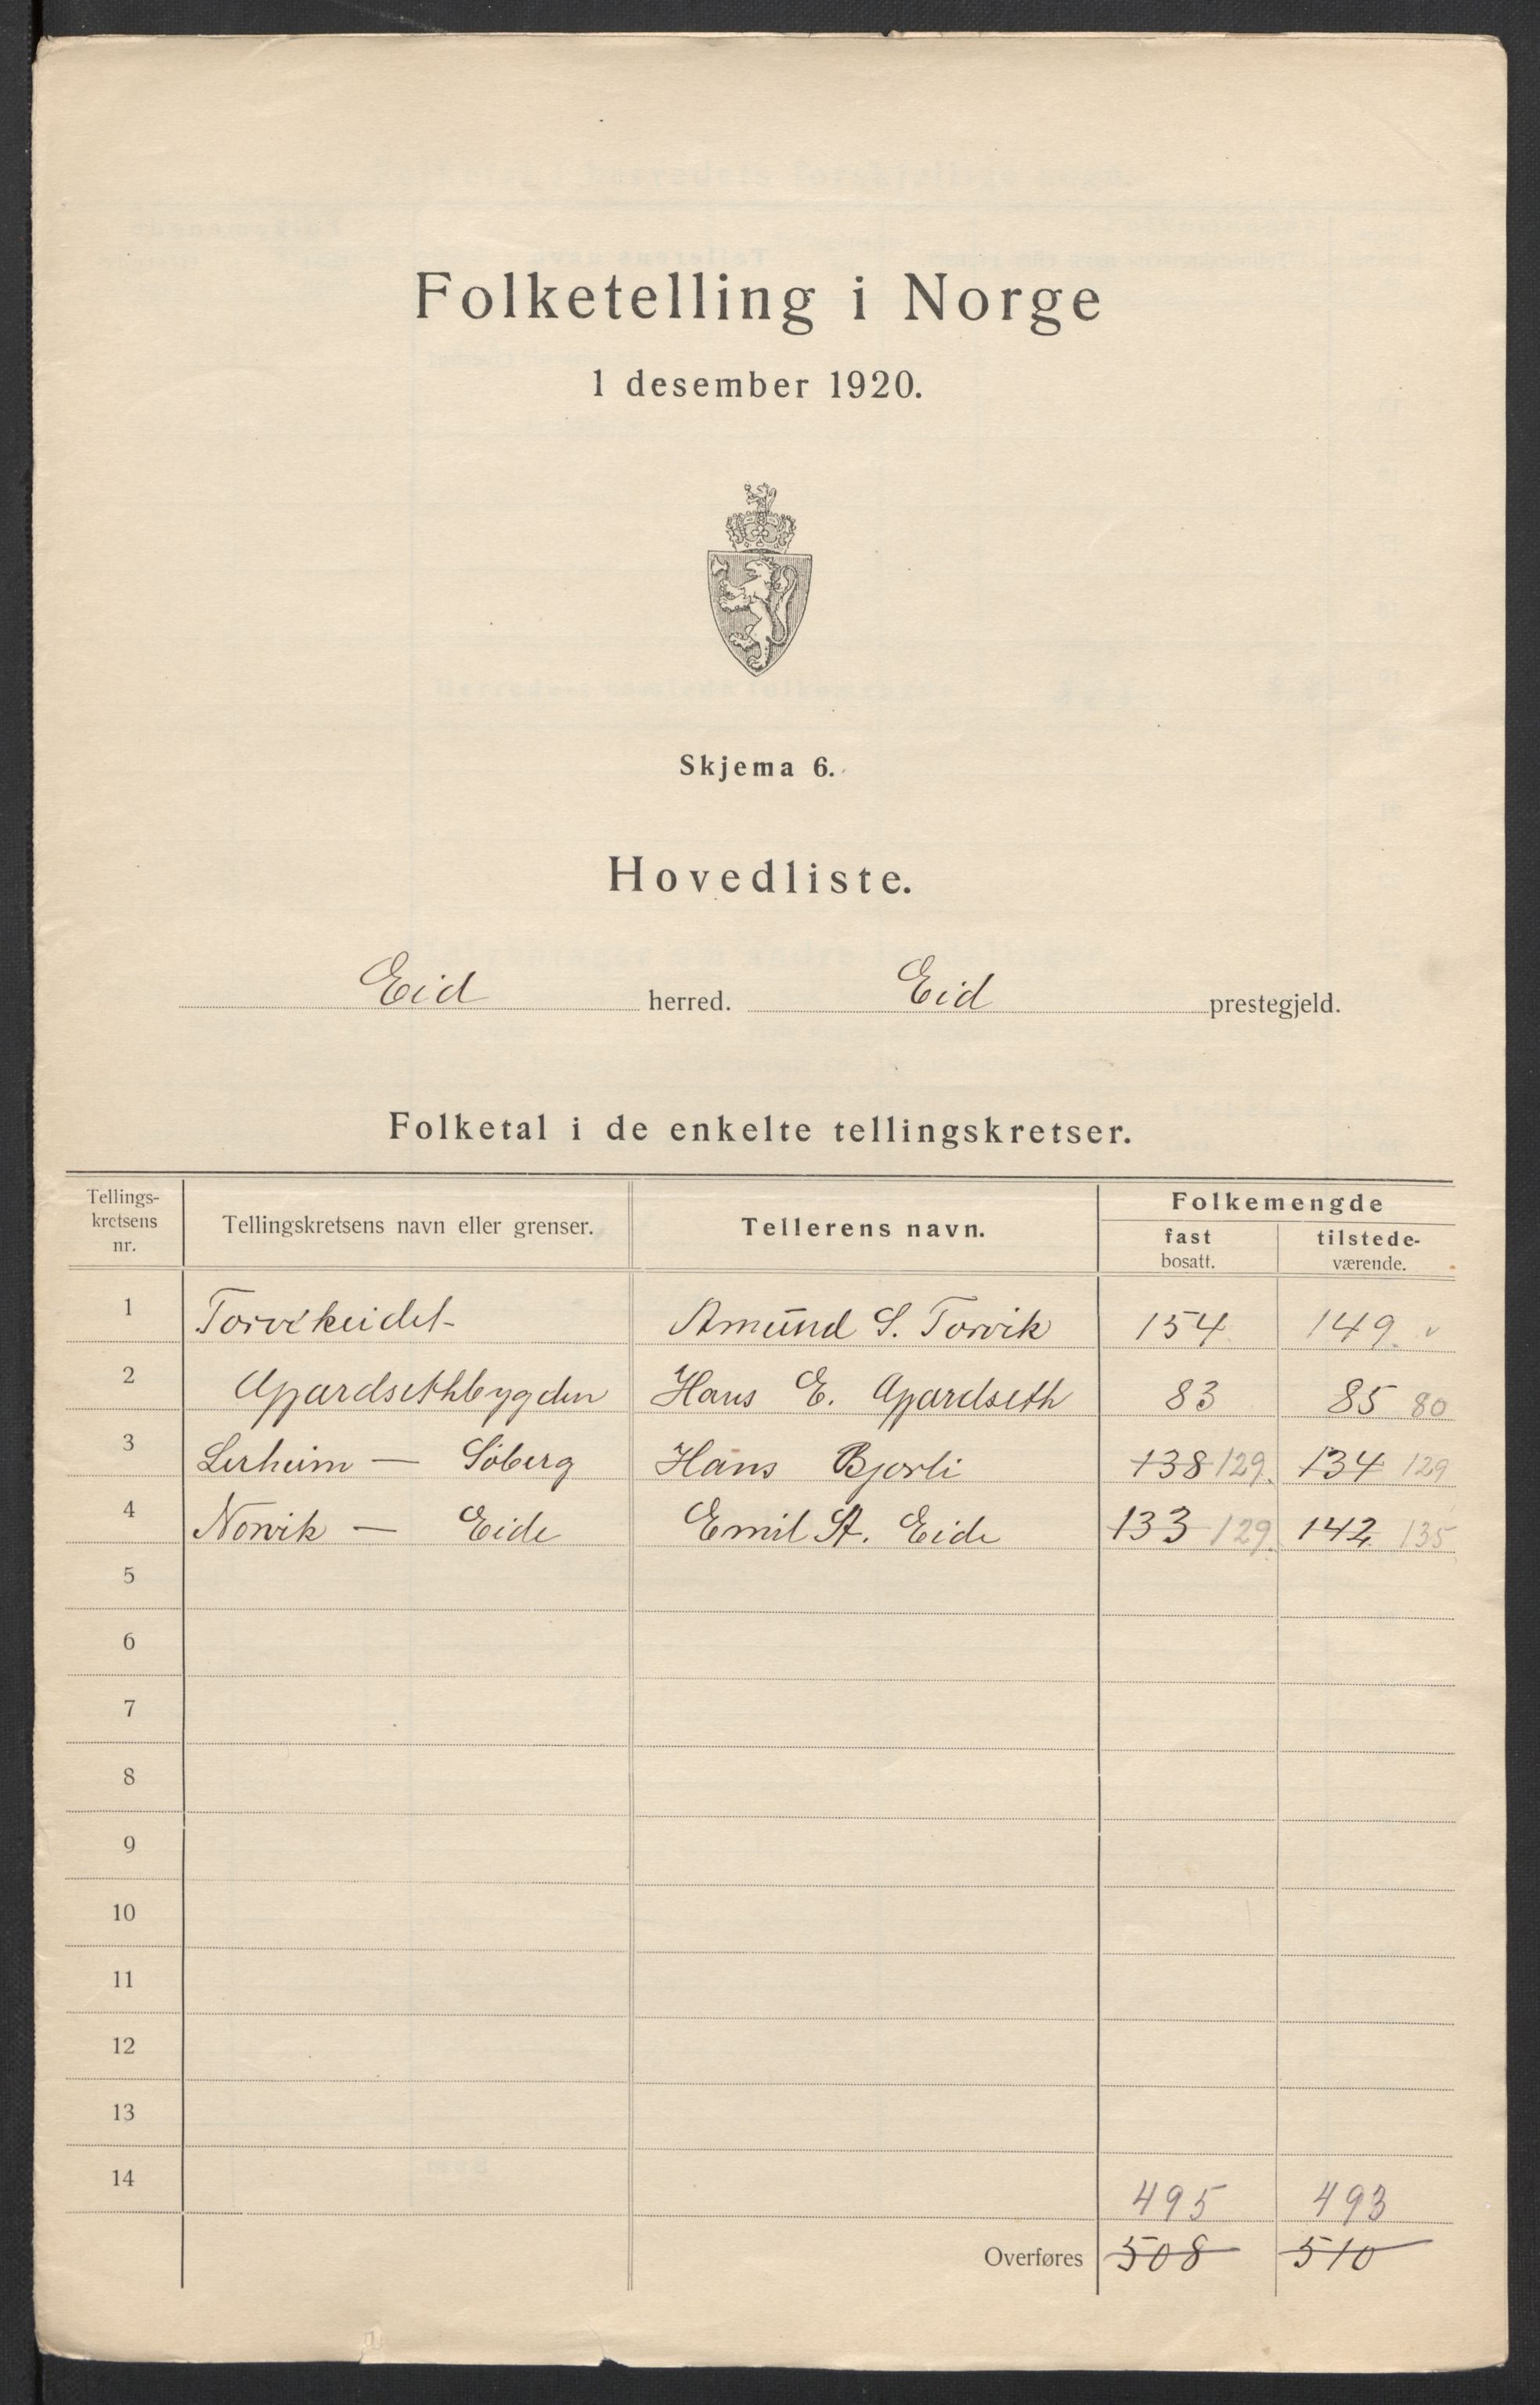 Folketelling i Norge
1 desember 1920.
Skjema 6.
Hovedliste.
Eid herred. Eid prestegjeld.
Folketal i de enkelte tellingskretser.
Tellings-kretsens nr. Tellingskretsens navn eller grenser. Tellerens navn. Folkemengde
fast bosatt. tilstede-værende.
1 Torvikeidet Amund S. Torvik 154 149 v
2 Apardsethbygden Hans E. Apardseth 83 85 80
3 Lerheim — Söberg Hans Bjerli 138 129 134 129
4 Norvik — Eide Emil St. Eide 133 129 142 135
5
6
7
8
9
10
11
12
13
14
495 493
Overføres 508 510